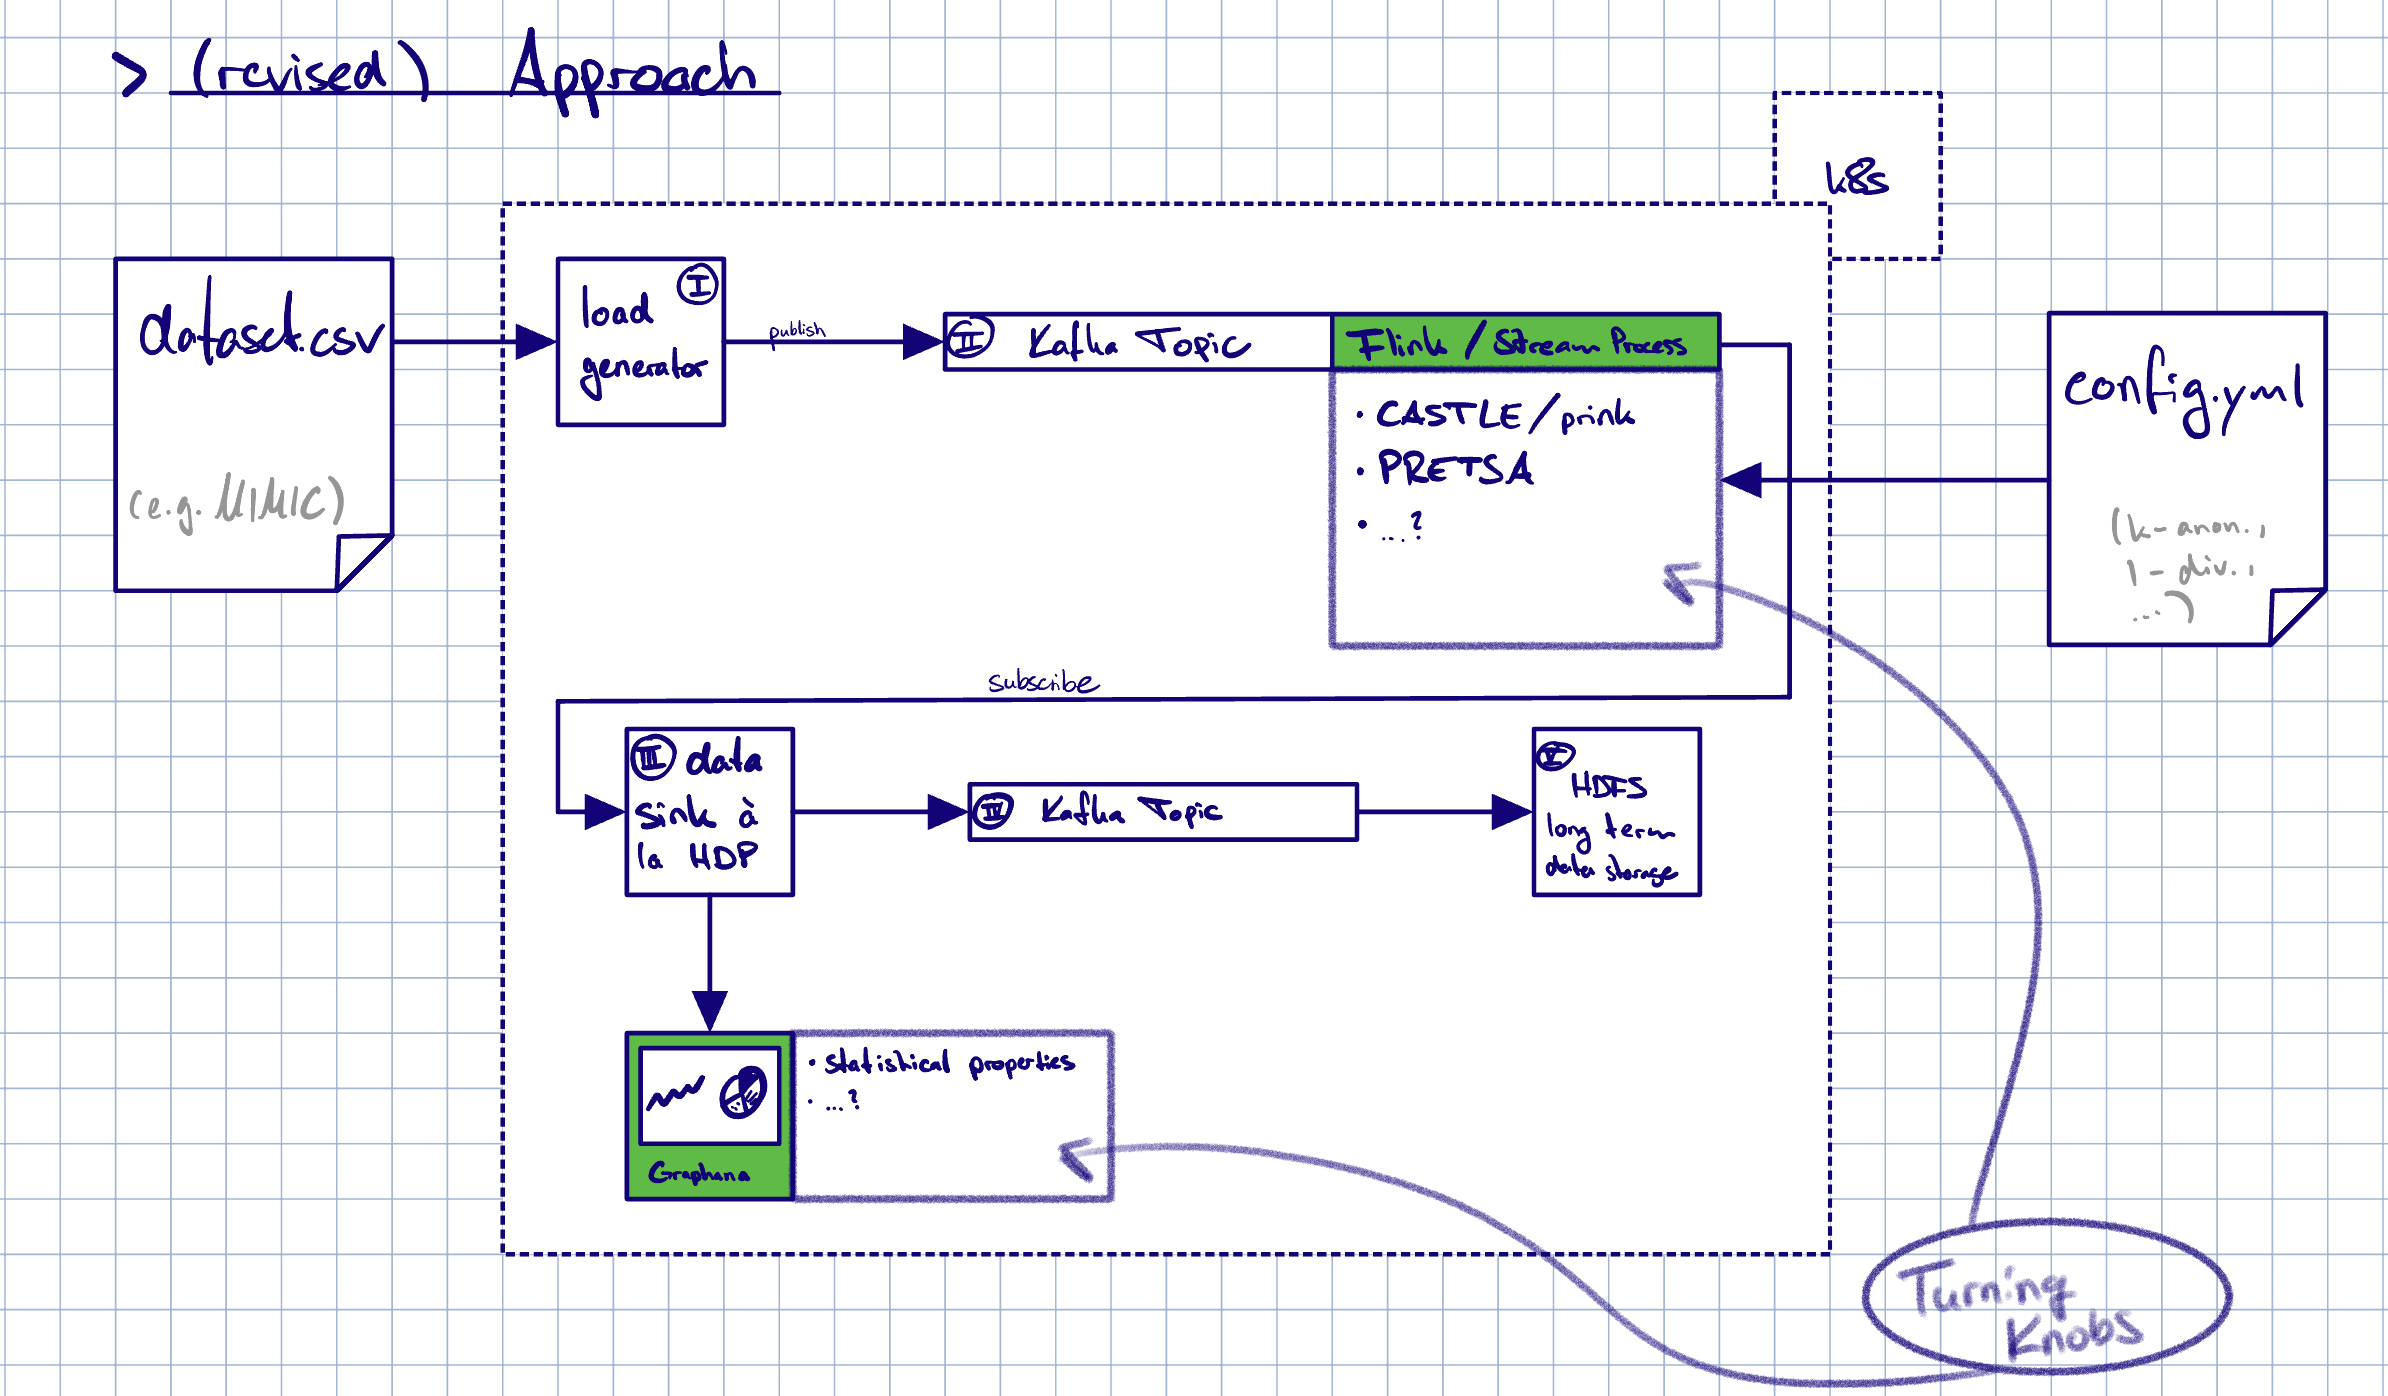 > (revised) Approach
k8s
dataset.csv
(e.g. MIMIC)
I
load
generator
publish
II Kafka Topic
Flink / Stream Process
• CASTLE/prink
• PRETSA
• ...?
config.yml
(k-anon.,
l-div.,
...)
subscribe
III data
sink à
la HDP
IV Kafka Topic
V
HDFS
long term
data storage
Graphana
• statistical properties
• ...?
Turning
Knobs